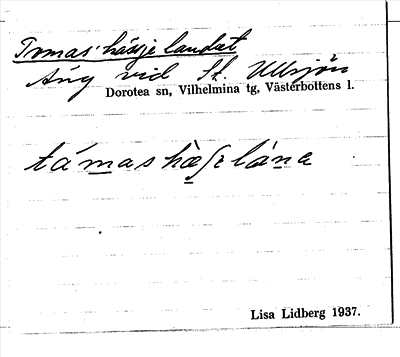 Tomas-hässjelandet
Äng vid St. Ullsjön
Dorotea sn, Vilhelmina tg, Västerbottens l.
támas hæ̀ʃelána
Lisa Lidberg 1937.